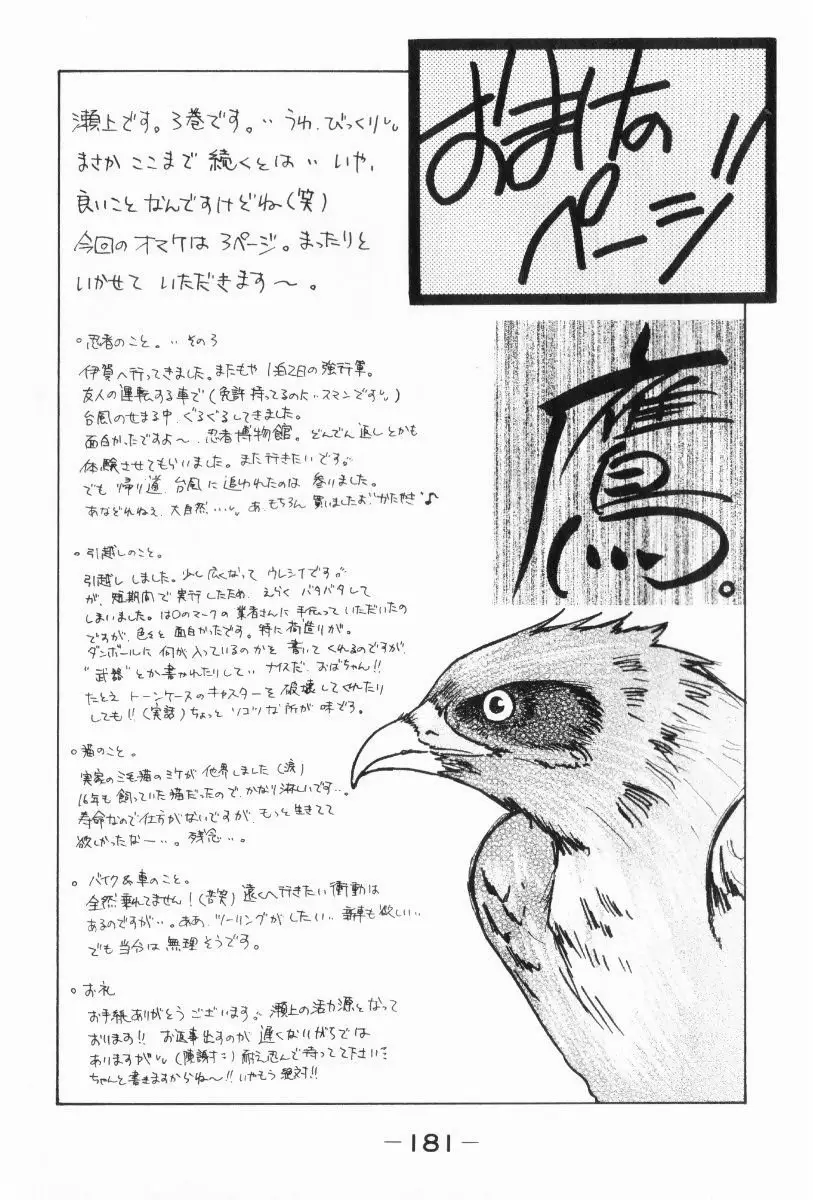 おまけの
ページ!!
瀬上です。3巻です。‥うわ、びっくり。
まさか ここまで 続くとは‥いや、
良いこと なんですけどね(笑)
今回の オマケは 3ページ。まったりと
いかせて いただきます〜。
鷹。
○忍者のこと。‥その3
伊賀へ行ってきました。またもや 1泊2日の強行軍。
友人の運転する車で(免許持ってるのに‥スマンです。)
台風のせまる中、ぐるぐるしてきました。
面白かったですよ〜、忍者博物館。どんでん返しとかも
体験させてもらいました。また行きたいです。
でも 帰り道、台風に追われたのは 参りました。
あなどれねぇ、大自然‥‥。あ、もちろん 買いましたよ"かたやき"♪
○引越しのこと。
引越し しました。少し広くなって ウレシイです。
が、短期間で実行したため、えらく バタバタして
しまいました。は○のマークの 業者さんに 手伝って いただいたの
ですが、色々と 面白かったです。特に 荷造りが。
ダンボールに 何が 入っているのかを 書いて くれるのですが、
"武器"とか書かれたりして‥ナイスだ、おばちゃん!!
たとえ トーンケースのキャスターを 破壊して くれたり
しても!!(実話)ちょっと ソコツな所が 味でろ。
○猫のこと。
実家の三毛猫のミケが 他界しました(涙)
16年も 飼っていた猫だったので、かなり淋しいです‥。
寿命なので仕方がないですが、もっと生きてて
欲しかったな〜‥。残念‥。
○バイク&車のこと。
全然乗れてません!(苦笑)遠くへ行きたい衝動は
あるのですが‥。ああ、ツーリングがしたい‥新車も欲しい‥
でも当分は 無理そうです。
○お礼
お手紙ありがとう ございます。瀬上の活力源となって
おります!! お返事出すのが 遅くなりがちでは
ありますが(陳謝)耐え忍んで待ってて下さい
ちゃんと書きますからね〜!!いやもう絶対!!
—181—